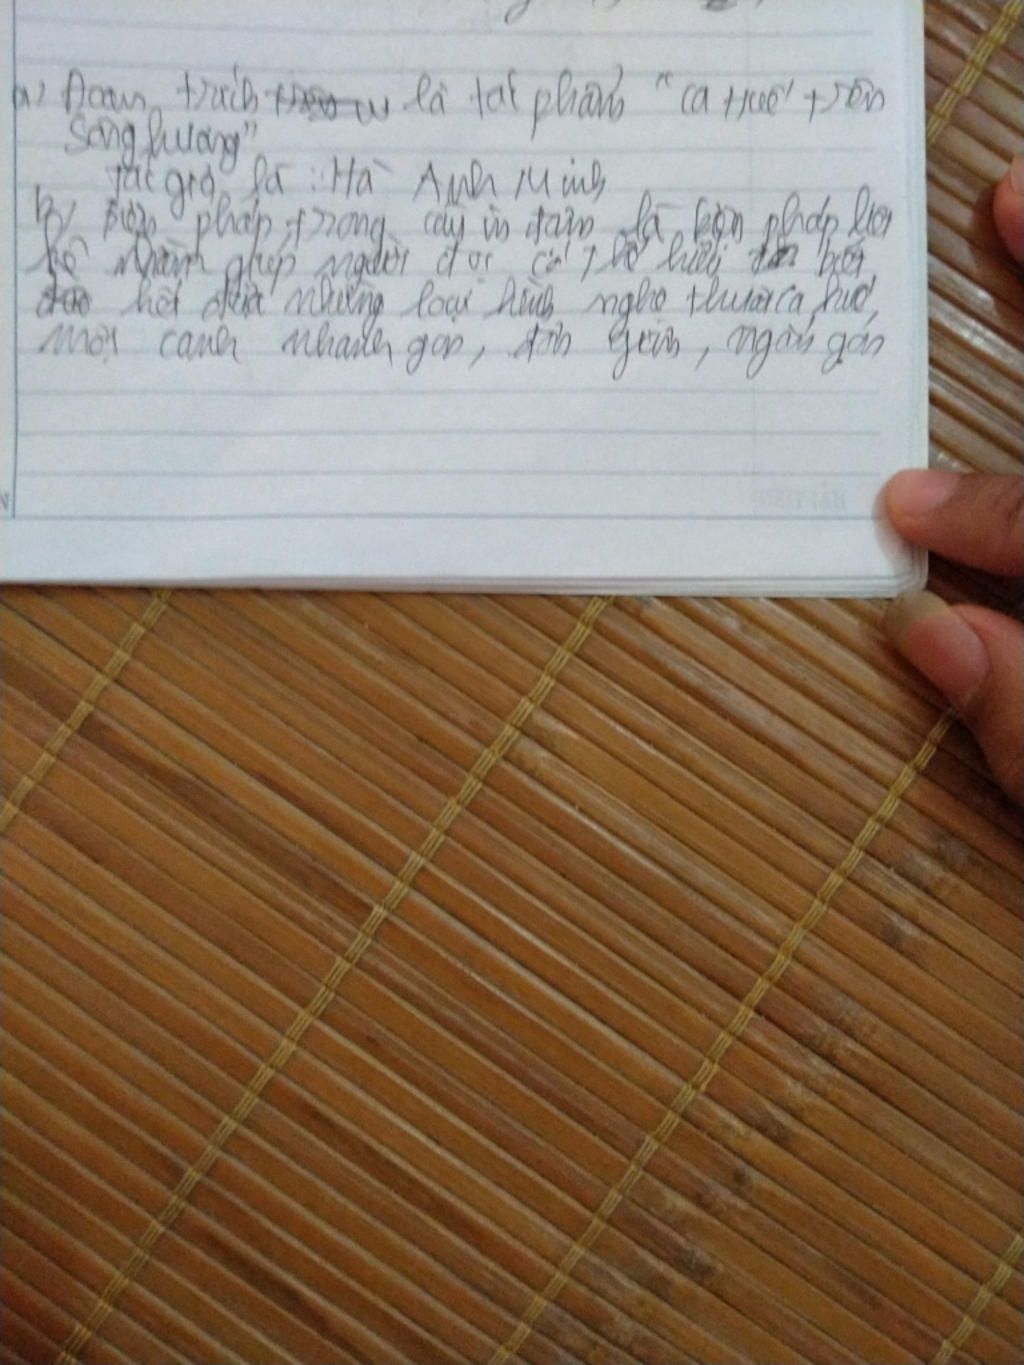 a) Đoạn trích là tác phẩm "Ca Huế trên
Sông Hương"
Tác giả là : Hà Ánh Minh
b) Biện pháp trong câu in đậm là biện pháp liệt
kê nhằm giúp người đọc có thể hiểu biết
hết những loại hình nghệ thuật ca huế,
một cách nhanh gọn, đơn giản, ngắn gọn